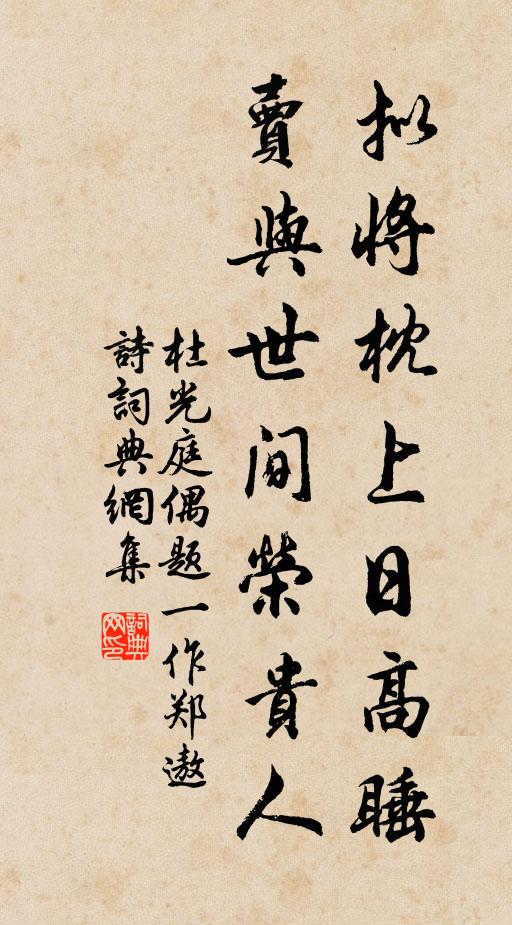 拟将枕上日高睡
賣與世間榮貴人
杜光庭偶题一作郑遨
詩詞典網集
詞典网印